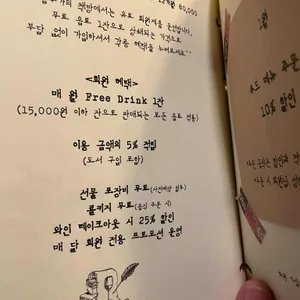 12개월 80,000
책방에서는 유료 회원제를 운영합니다.
무료 음료 1잔으로 상쇄되는 가격으로
부담 없이 가입하셔서 각종 혜택을 누려보세요~
<회원 혜택>
매 월 Free Drink 1잔
(15,000원 이하 잔으로 판매되는 모든 음료 적용)
이용 금액의 5% 적립
(도서 구입 포함)
선물 포장비 무료(사전예약 필요)
콜키지 무료(음식 주문 시)
와인 테이크아웃 시 25% 할인
매 달 회원 전용 프로모션 운영
1월
푸드 메뉴 주문
10% 할인